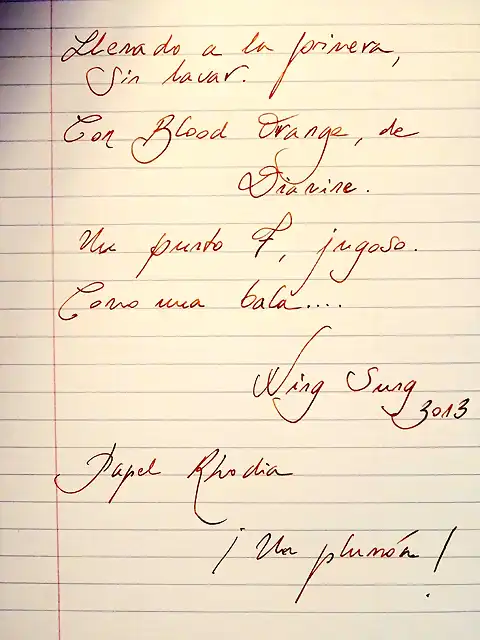 Llenado a la primera,
Sin lavar.
Con Blood Orange, de
Diamine.
Un punto F, jugoso.
Como una bala....
Wing Sung
3013
Papel Rhodia
¡Un plumón!